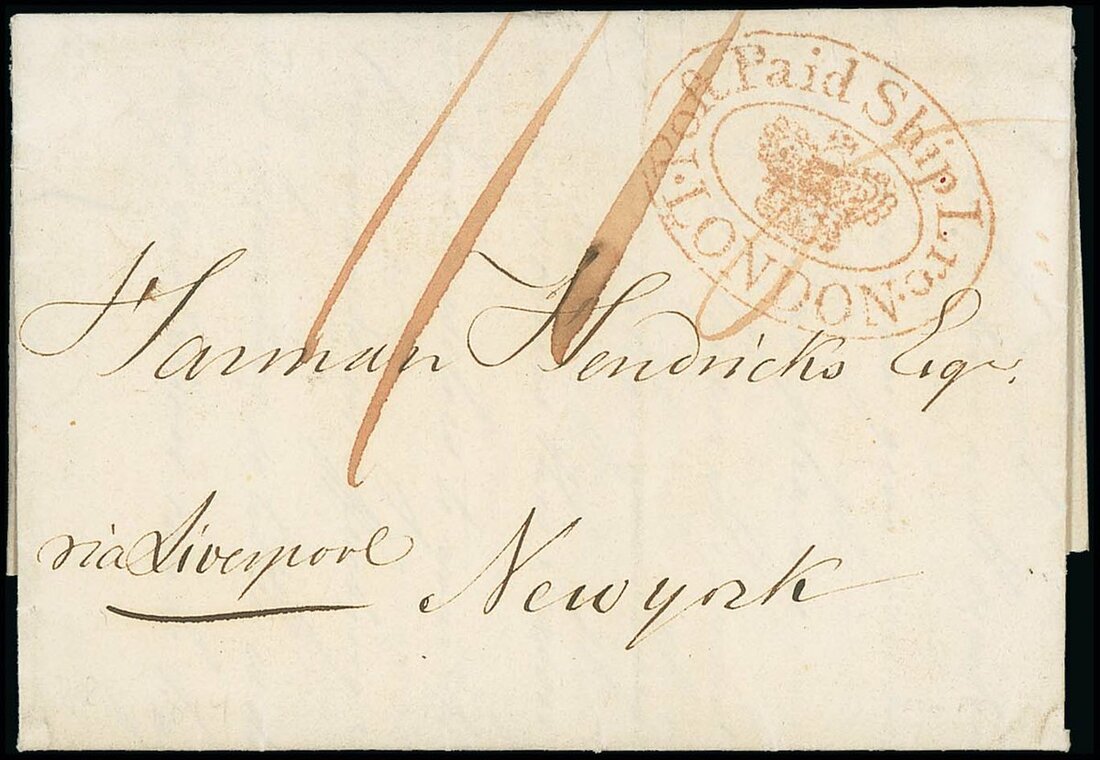 Post Paid Ship Lre.
LONDON
Harman Hendricks Esqr.
via Liverpool
Newyork